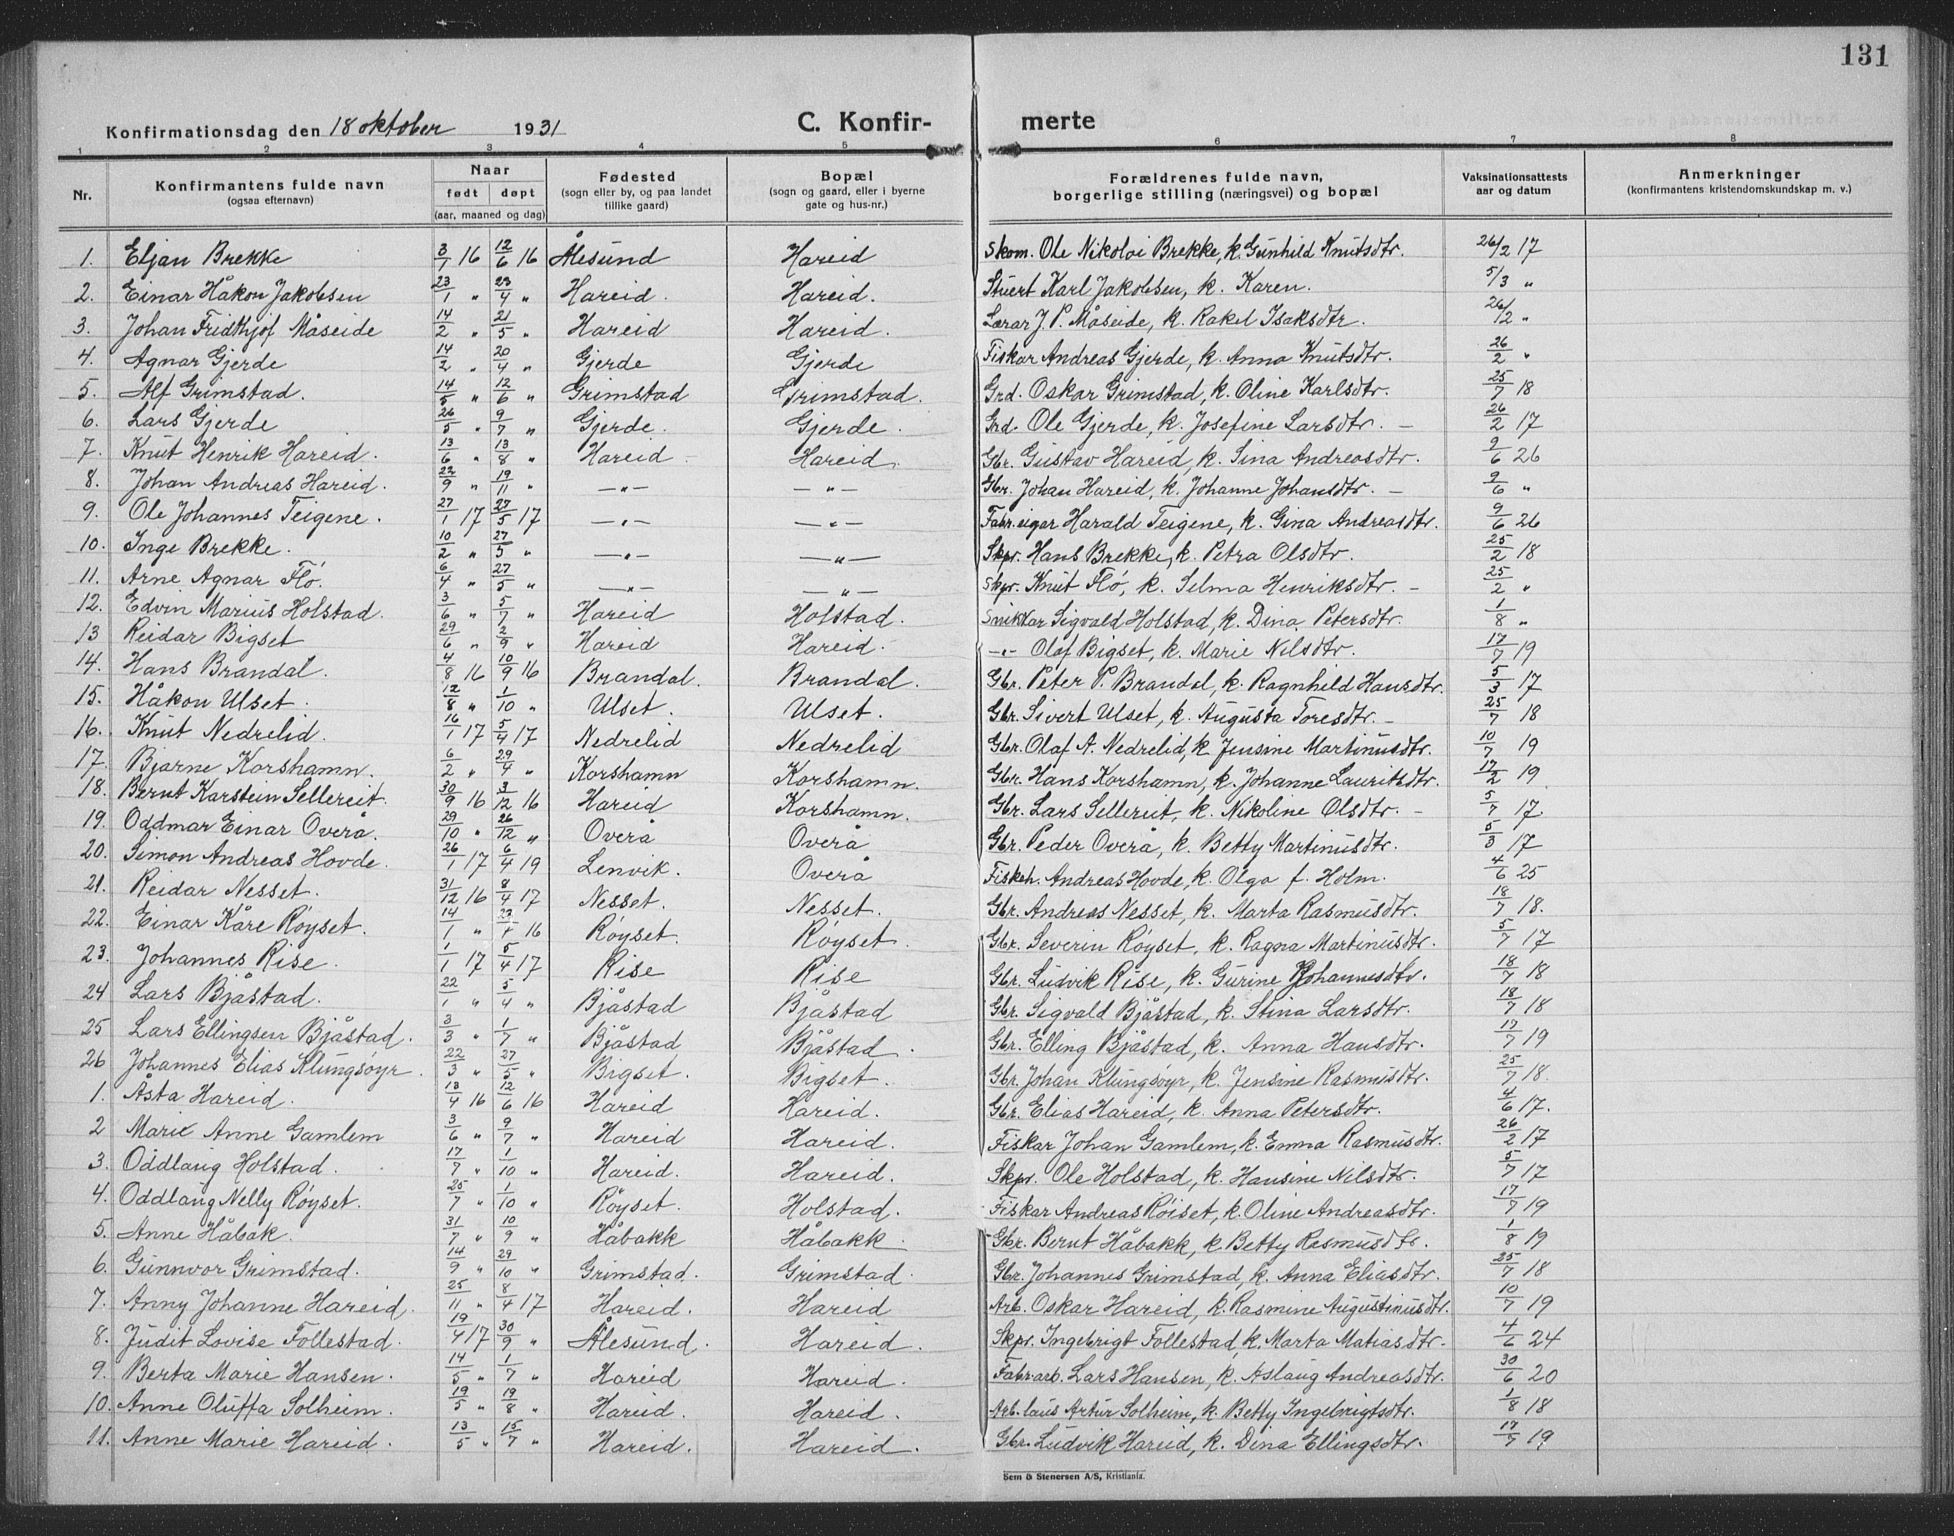 131
Konfirmationsdag den 18 oktober 1931 C. Konfir- merte
1 2 3 4 5 6 7 8
Nr. Konfirmantens fulde navn (ogsaa efternavn) Naar født døpt (aar, maaned og dag) Fødested (sogn eller by, og paa landet tillike gaard) Bopæl (sogn og gaard, eller i byerne gate og hus-nr.) Forældrenes fulde navn, borgerlige stilling (næringsvei) og bopæl Vaksinationsattests aar og datum Anmerkninger (konfirmantens kristendomskundskap m. v.)
1. Eljan Brekke 3/1 16 12/6 16 Ålesund Hareid Skom. Ole Nikolai Brekke, k. Gunhild Knutsdtr. 26/2 17
2. Einar Håkon Jakobsen 23/1 " 23/4 " Hareid. Hareid. Stuert Karl Jakobsen, k. Karen. 5/3 "
3. Johan Fridthjof Måseide 14/2 " 21/5 " Hareid Hareid. Lærar J. P. Måseide, k. Rakel Isaksdtr. 26/2 "
4. Agnar Gjerde 14/2 " 20/4 " Gjerde Gjerde Fiskar Andreas Gjerde, k. Anna Knutsdtr. 26/2 "
5. Alf Grimstad. 14/5 " 12/6 " Grimstad Grimstad. Grd. Oskar Grimstad, k. Oline Karlsdtr. 25/7 18
6. Lars Gjerde 26/5 " 9/7 " Gjerde. Gjerde. Grd. Ole Gjerde, k. Josefine Larsdtr. – 26/2 17
7. Knut Henrik Hareid. 13/6 " 13/8 " Hareid Hareid. Gbr. Gustav Hareid, k. Sina Andreasdtr. 9/6 26
8. Johan Andreas Hareid. 22/9 " 19/11 " —"— —"— Gbr. Johan Hareid, k. Johanne Johansdtr. – 9/6 "
9. Ole Johannes Teigene. 27/1 17 27/5 17 —"— —"— Fabr. eigar Harald Teigene, k. Gina Andreasdtr. 9/6 26
10. Inge Brekke. 10/2 " 27/5 " —"— —"— Skpr. Hans Brekke, k. Petra Olsdtr. 25/2 18
11. Arne Agnar Flø. 6/4 " 27/5 " —"— —"— Skpr. Knut Flø, k. Selma Henriksdtr. – 25/2 "
12. Edvin Marius Holstad. 3/6 " 5/7 " Hareid Holstad. Snikkar Sigvald Holstad, k. Dina Petersdtr. 1/8 "
13 Reidar Bigset 29/6 " 2/9 " Hareid Hareid. —"— Olaf Bigset, k. Marie Nilsdtr. 17/7 19
14. Hans Brandal. 4/8 16 10/9 16 Brandal. Brandal. Gbr. Peter P. Brandal, k. Ragnhild Hansdtr. 5/3 17
15. Håkon Ulset. 12/8 " 1/10 " Ulset. Ulset. Gbr. Sivert Ulset, k. Augusta Toresdtr. – 25/7 18
16. Knut Nedrelid. 16/1 17 5/4 17 Nedrelid Nedrelid Gbr. Olaf A. Nedrelid, k. Jensine Martinusdtr. 10/7 19
17. Bjarne Korshamn. 6/2 " 29/4 " Korshamn Korshamn. Gbr. Hans Korshamn, k. Johanne Lauritsdtr. 17/2 19.
18. Bernt Karstein Sellereit. 30/9 16 3/12 16 Hareid Korshamn. Gbr. Lars Sellereit, k. Nikoline Olsdtr. – 5/7 17
19. Oddmar Einar Overå. 29/10 " 26/12 " Overå Overå Gbr. Peder Overå, k. Betty Martinusdtr. 5/3 17
20. Simon Andreas Hovde. 26/1 17 6/4 19 Lenvik. Overå Fiskeh. Andreas Hovde, k. Olga f. Holm. 4/6 25
21. Reidar Nesset. 31/12 16 8/4 17 Nesset. Nesset. Gbr. Andreas Nesset, k. Marta Rasmusdtr. 18/7 18.
22. Einar Kåre Røyset. 14/1 " 23/4 16 Røyset. Røyset. Gbr. Severin Røyset, k. Ragna Martinusdtr. 5/7 17
23. Johannes Rise. 1/1 17 5/4 17 Rise Rise Gbr. Ludvik Rise, k. Gurine Johannesdtr. 18/7 18
24 Lars Bjåstad. 22/1 " 5/4 " Bjåstad Bjåstad Gbr. Sigvald Bjåstad, k. Stina Larsdtr. 18/7 18
25 Lars Ellingsen Bjåstad. 3/3 " 1/7 " Bjåstad Bjåstad. Gbr. Elling Bjåstad, k. Anna Hansdtr. 17/7 19
26 Johannes Elias Klungsøyr. 22/3 " 27/5 " Bigset. Bigset. Gbr. Johan Klungsøyr, k. Jensine Rasmusdtr. 25/7 18.
1. Åsta Hareid. 13/4 16 12/6 16 Hareid Hareid. Gbr. Elias Hareid, k. Anna Petersdtr. 4/6 17.
2 Marie Anne Gamlem 3/6 " 9/7 " Hareid Hareid. Fiskar Johan Gamlem, k. Emma Rasmusdtr. 26/2 17
3. Oddlaug Holstad. 17/7 " 1/10 " Hareid. Hareid. Skpr. Ole Holstad, k. Hansine Nilsdtr. 5/7 17
4. Oddlaug Nelly Røyset. 25/7 " 1/10 " Røyset. Holstad. Fiskar Andreas Røiset, k. Oline Andreasdtr. 17/7 19
5. Anne Håbak. 31/7 " 10/9 " Håbakk Håbakk. Gbr. Bernt Håbakk, k. Betty Rasmusdtr. 1/8 19
6. Gunnvor Grimstad. 14/9 " 29/10 " Grimstad. Grimstad. Gbr. Johannes Grimstad, k. Anna Eliasdtr. 25/7 18
7. Anny Johanne Hareid. 25/11 " 8/4 17 Hareid. Hareid Arb. Oskar Hareid, k. Rasmine Augustinusdtr. 10/7 19
8. Judit Lovise Follestad. 19/4 17 30/9 " Ålesund. Hareid. Skpr. Ingebrigt Follestad, k. Marta Matiasdtr. 4/6 24
9. Berta Marie Hansen. 14/5 " 1/7 " Hareid Hareid. Fabr.arb. Lars Hansen, k. Aslaug Andreasdtr. 30/6 20
10. Anne Oluffa Solheim. 19/5 " 19/8 " Hareid. Hareid. Arb.laus Artur Solheim, k. Betty Ingebrigtsdtr. 1/8 18
11. Anne Marie Hareid. 13/5 " 15/7 " Hareid. Hareid. Gbr. Ludvik Hareid, k. Dina Ellingsdtr. 17/7 19
Sem & Stenersen A/S, Kristiania.